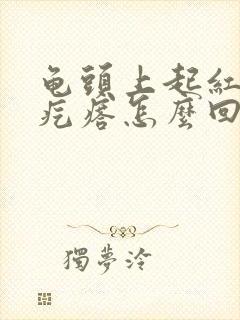 龟頭上起紅
疙瘩怎麼回
獨夢泠